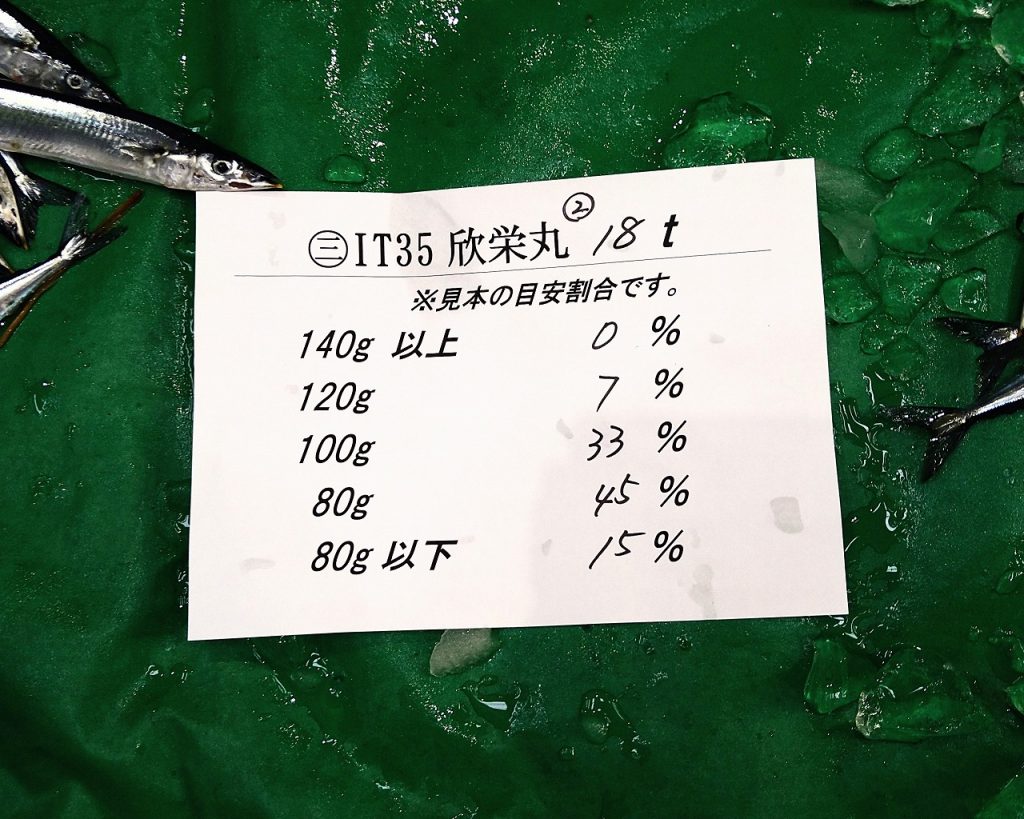 ㊂IT35 欣栄丸 ② 18 t
※見本の目安割合です。
140g 以上 0 %
120g 7 %
100g 33 %
80g 45 %
80g 以下 15 %